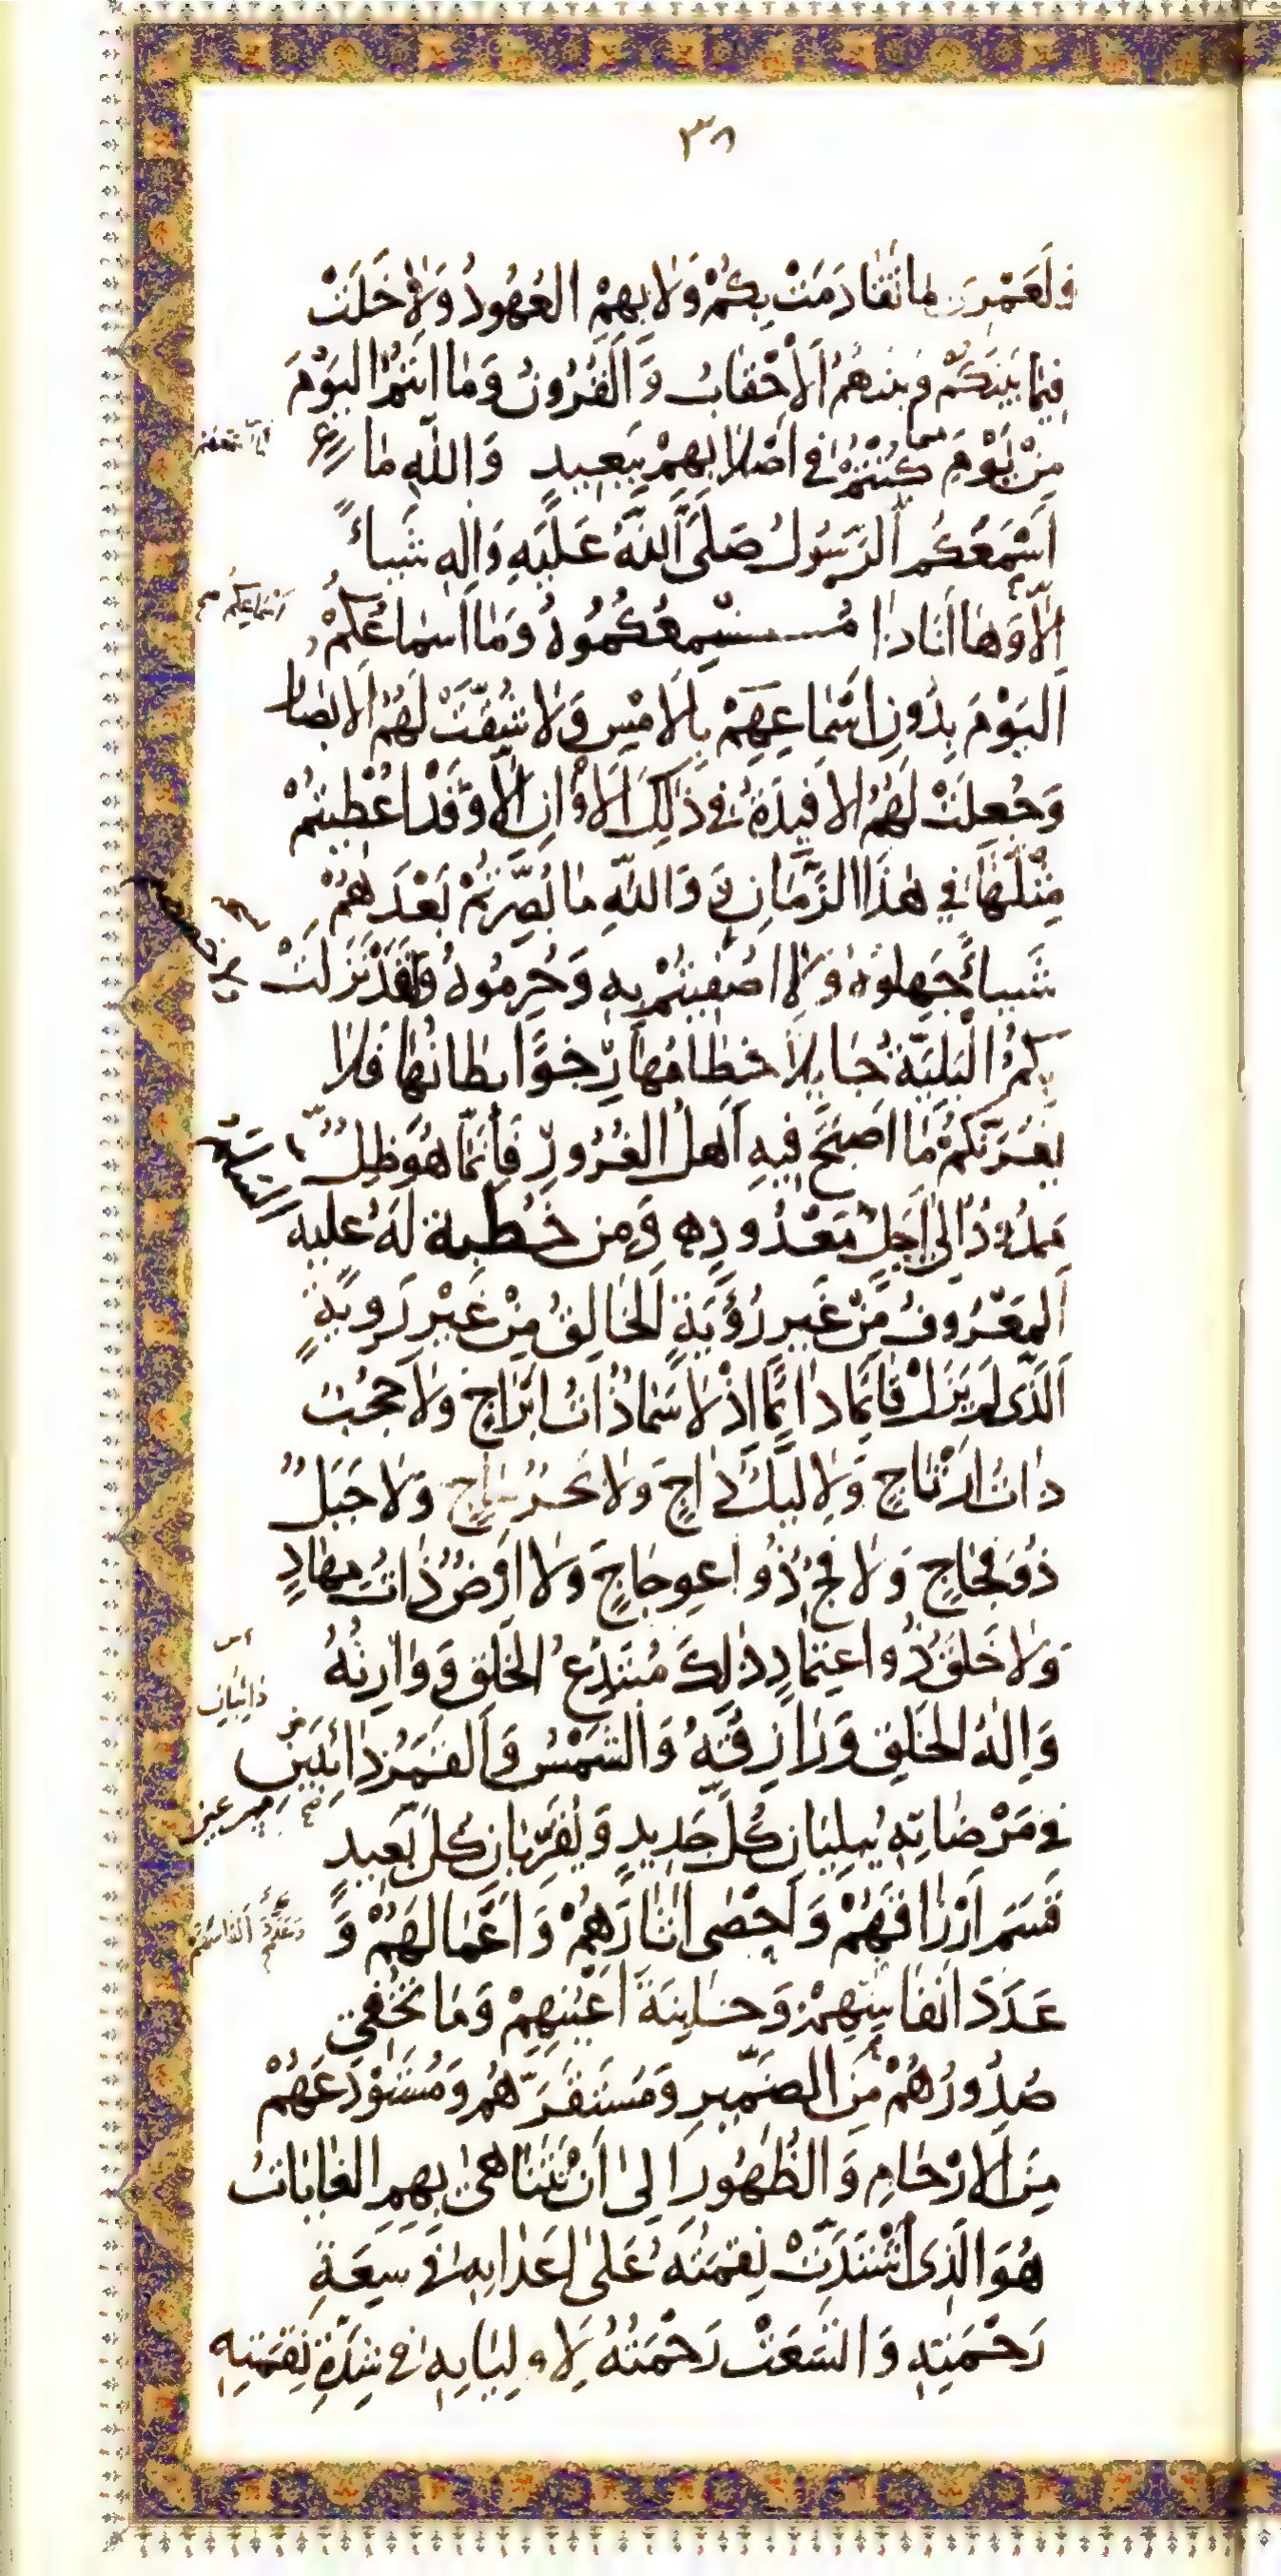 ٣٨
وَلَعَمْرِى مَا تَقَادَمَتْ بِكُمْ وَلَا بِهِمُ العُهُودُ وَلَا خَلَتْ
فِيمَا بَيْنَكُمْ وَبَيْنَهُمُ الْأَحْقَابُ وَالْقُرُونُ وَمَا اَنْتُمُ اليَوْمَ
مِنْ يَوْمِ كُنْتُمْ فى اَصْلَابِهِمْ بِبَعِيدٍ وَاللّهِ مَا
اَسْمَعَكُم الرَّسُولُ صَلَّى اللهُ عَلَيْهِ وَالِهِ شَيْئاً
اِلَّا وَهَا اَنَا ذَا مُسْمِعُكُمُوهُ وَمَا اَسْمَاعُكُمْ
اليَوْمَ بِدُونِ اَسْمَاعِهِمْ بِالْاَمْسِ وَلَا شُقَّتْ لَهُمُ الْاَبْصَارُ
وَجُعِلَتْ لَهُمُ الْاَفْئِدَةُ فى ذَلِكَ الْاَوَانِ اِلَّا وَقَدْ اُعْطِيتُمْ
مِثْلَهَا فى هَذَا الزَّمَانِ وَ وَاللهِ مَا بُصِّرْتُمْ بَعْدَهُمْ
شَيْئاً جَهِلُوهُ وَلَا اُصْفِيتُمْ بِهِ وَحُرِمُوهُ وَلَقَدْ نَزَلَتْ
بِكُمُ الْبَلِيَّةُ جَائِلًا خِطَامُهَا رِخْوًا بِطَانُهَا فَلَا
يَغُرَّنَّكُمْ مَا اَصْبَحَ فِيهِ اَهْلُ الغُرُورِ فَاِنَّمَا هُوَ ظِلٌّ
مَمْدُودٌ اِلى اَجَلٍ مَعْدُودٍ ه وَمِن خُطْبَة لَهُ عليه السَّلَامُ
اَلمَعْرُوفُ مِنْ غَيْرِ رُؤْيَةٍ الخَالِقُ مِنْ غَيْرِ رَوِيَّةٍ
اَلَّذِى لَمْ يَزَلْ قَائِمًا دَائِمًا اِذْ لَا سَمَاءٌ ذَاتُ اَبْرَاجٍ وَلَا حُجُبٌ
ذَاتُ اَرْتَاجٍ وَلَا لَيْلٌ دَاجٍ وَلَا بَحْرٌ سَاجٍ وَلَا جَبَلٌ
ذُو فِجَاجٍ وَلَا فَجٌّ ذُو اعْوِجَاجٍ وَلَا اَرْضٌ ذَاتُ مِهَادٍ
وَلَا خَلْقٌ ذُو اعْتِمَادٍ ذلِكَ مُبْتَدِعُ الخَلْقِ وَوَارِثُهُ
وَاِلهُ الخَلْقِ وَرَازِقُهُ وَالشَّمْسُ وَالقَمَرُ دَائِبَيْنِ
فى مَرْضَاتِهِ يُبْلِيَانِ كُلَّ جَدِيدٍ وَيُقَرِّبَانِ كُلَّ بَعِيدٍ
قَسَمَ اَرْزَاقَهُمْ وَاَحْصَى اثَارَهُمْ وَاَعْمَالَهُمْ وَ
عَدَدَ اَنْفَاسِهِمْ وَخَائِنَةَ اَعْيُنِهِمْ وَمَا تُخْفِى
صُدُورُهُمْ مِنَ الضَّمِيرِ وَمُسْتَقَرَّهُمْ وَمُسْتَوْدَعَهُمْ
مِنَ الْاَرْحَامِ وَالظُّهُورِ اِلىَ اَنْ تَتَنَاهَى بِهِمِ الغَايَاتُ
هُوَ الَّذِى اشْتَدَّتْ نِقْمَتُهُ عَلَى اَعْدَائِهِ فى سِعَةِ
رَحْمَتِهِ وَاتَّسَعَتْ رَحْمَتُهُ لِاَوْلِيَائِهِ فى شِدَّةِ نِقْمَتِهِ
اَسْمَاعِكُم
دَائِبَانِ
وَعَدَدَ اَنْفَاسَهُمْ